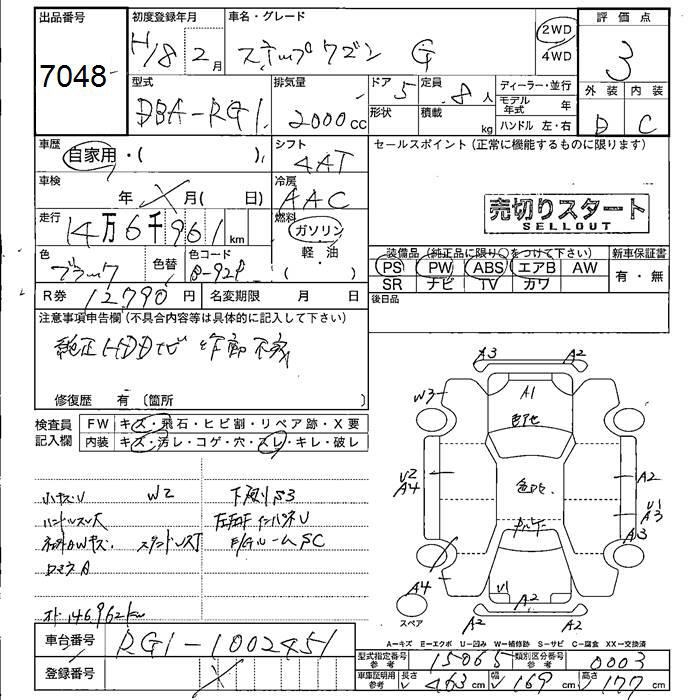 出品番号
7048
初度登録年月
H18 2月
車名・グレード
ステップワゴン G
2WD
4WD
評価点
3
外装 内装
D C
型式
DBA-RG1
排気量
2000cc
ドア 5
形状
定員 8人
積載 kg
ディーラー・並行
モデル年式 年
ハンドル 左・右
車歴
自家用・( )
シフト
4AT
セールスポイント (正常に機能するものに限ります)
車検
年 月( 日)
冷房
AAC
売切りスタート
SELLOUT
走行
14万6千961km
燃料
ガソリン
軽・油
色
ブラック
色替
色コード
B-92P
装備品 (純正品に限り○をつけて下さい)
PS PW ABS エアB AW
SR ナビ TV カワ
新車保証書
有・無
R券 12790円
名変期限 月 日
後日品
注意事項申告欄(不具合内容等は具体的に記入して下さい)
純正HDDナビ 作動不良
修復歴 有 〔箇所 〕
検査員記入欄
FW キズ・飛石・ヒビ割・リペア跡・X要
内装 キズ・汚レ・コゲ・穴・スレ・キレ・破レ
小キズ・U W2
下廻りS3
オド 146962km
A3 A2
W3
A1
色アセ
U2
A4
A2
U1
A3
A3
A4
U1
A2
A2 A2
スペア
A－キズ E－エクボ U－凹み W－補修跡 S－サビ C－腐食 XX－交換済
車台番号
RG1-1002451
登録番号
型式指定番号
参考
15065
類別区分番号
参考
0003
車庫証明用
参考
長さ
463cm
幅
169cm
高さ
177cm